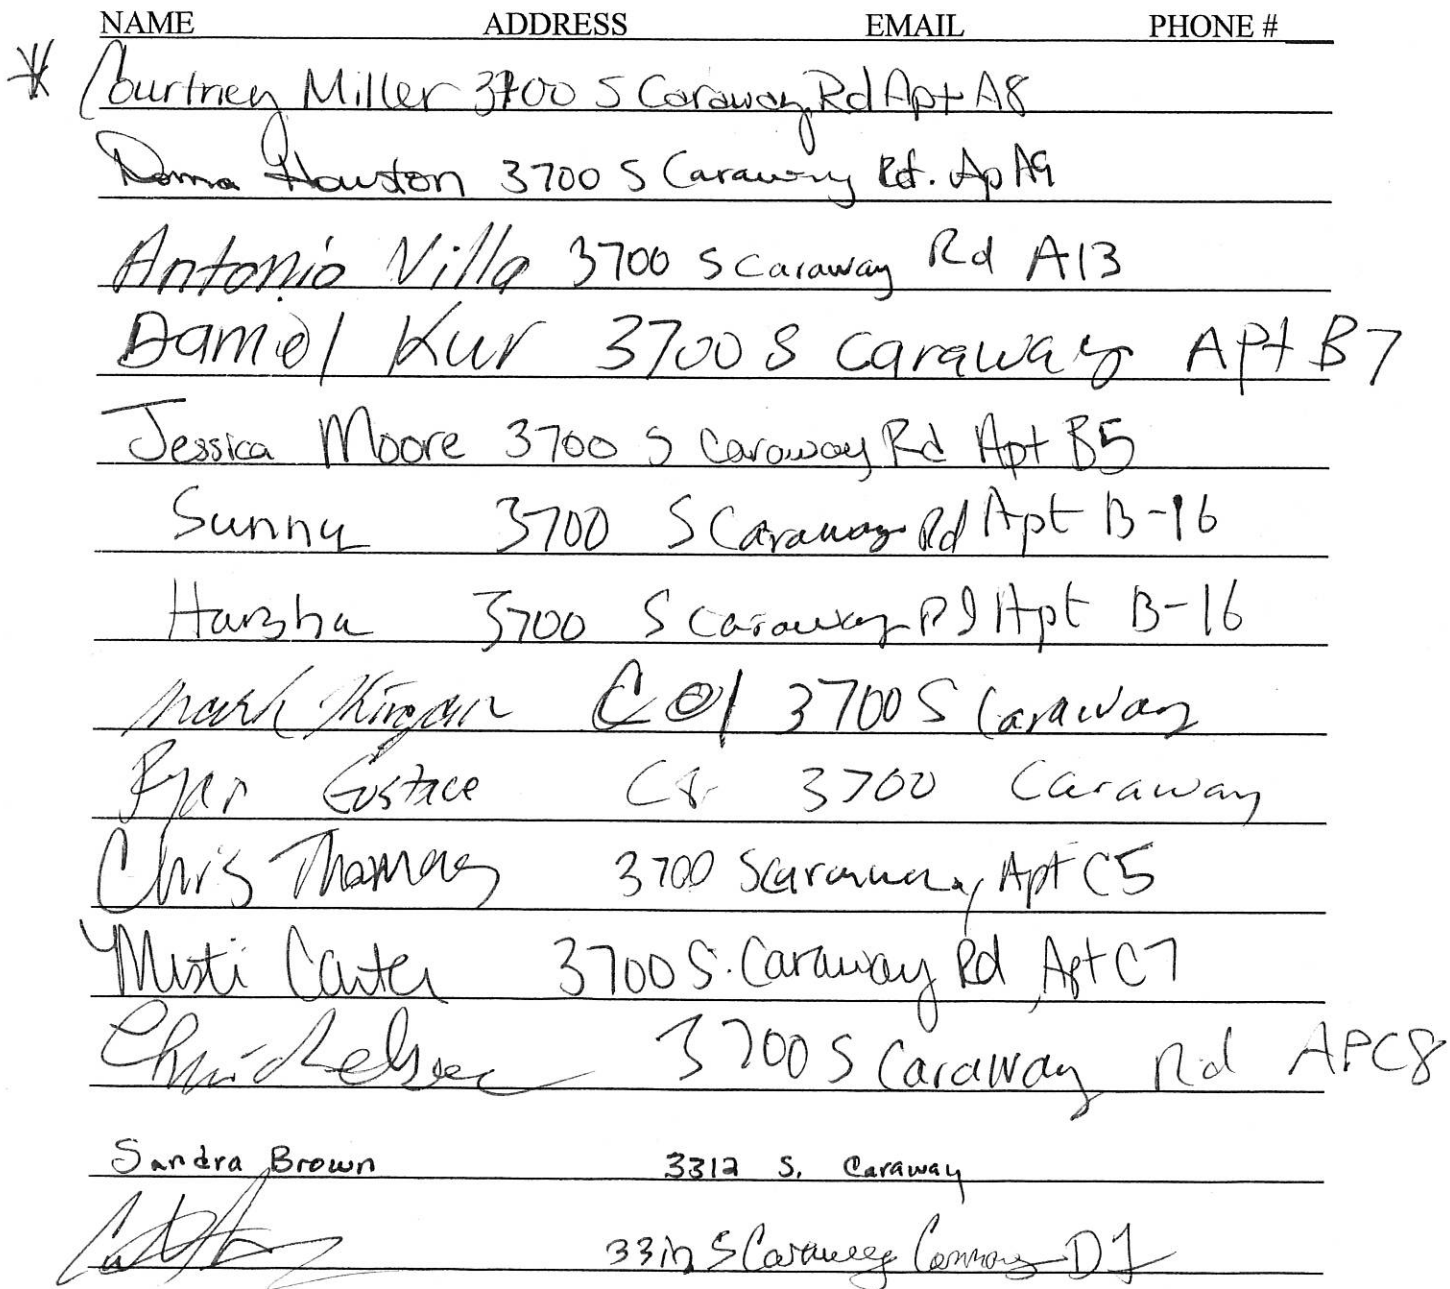 NAME ADDRESS EMAIL PHONE #
Courtney Miller 3700 S Caraway Rd Apt A8
Donna Houston 3700 S Caraway Rd. Ap A9
Antonio Villa 3700 S Caraway Rd A13
Daniel Kur 3700 S Caraway Apt B7
Jessica Moore 3700 S Caraway Rd Apt B5
Sunny 3700 S Caraway Rd Apt B-16
Harsha 3700 S Caraway Rd Apt B-16
Mark 3700 S Caraway
Ryan Eustace 3700 Caraway
Chris Thomas 3700 S Caraway Apt C5
Misti Carter 3700 S. Caraway Rd Apt C7
3700 S Caraway Rd AP C8
Sandra Brown 3312 S. Caraway
S Caraway D1